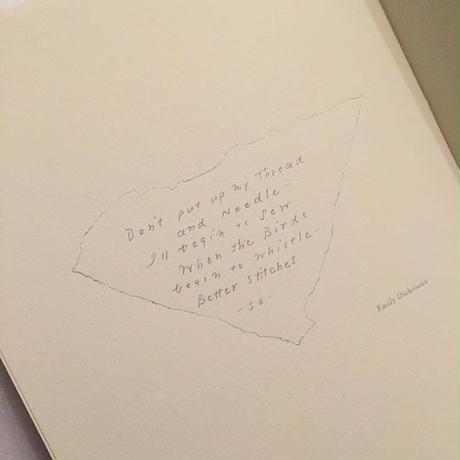 Don't put up my Thread
and Needle -
I'll begin to Sew
When the Birds
begin to whistle.
Better stitches
- so -
Emily Dickinson